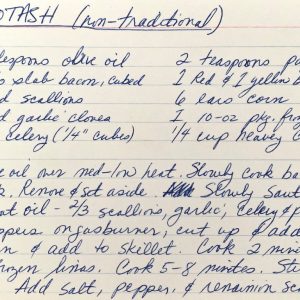 OTASH (non-traditional)
lespoons olive oil 2 teaspoons pa
b slab bacon, cubed 1 Red & 1 yellow b
d scallions 6 ears corn
d garlic cloves 1 10-oz pkg. fro
celery (1/4" cubes) 1/4 cup heavy c
e oil over med-low heat. Slowly cook ba
k. Remove & set aside. Slowly Saut
at oil - 2/3 scallions, garlic, celery & p
ppers on gas burner, cut up & add
n & add to skillet. Cook 2 min
frozen limas. Cook 5-8 minutes. St
Add salt, pepper, & remainin sc